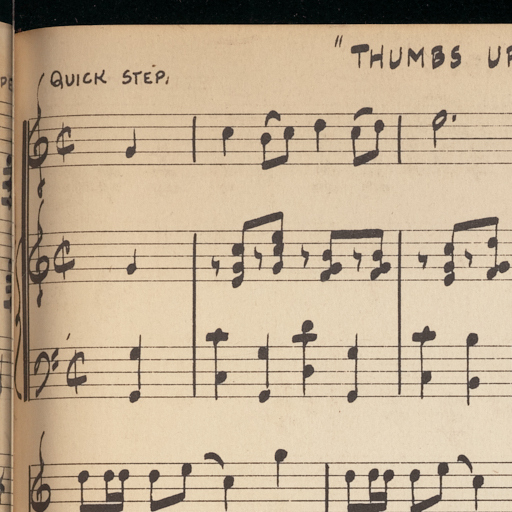 "THUMBS UP
QUICK STEP.